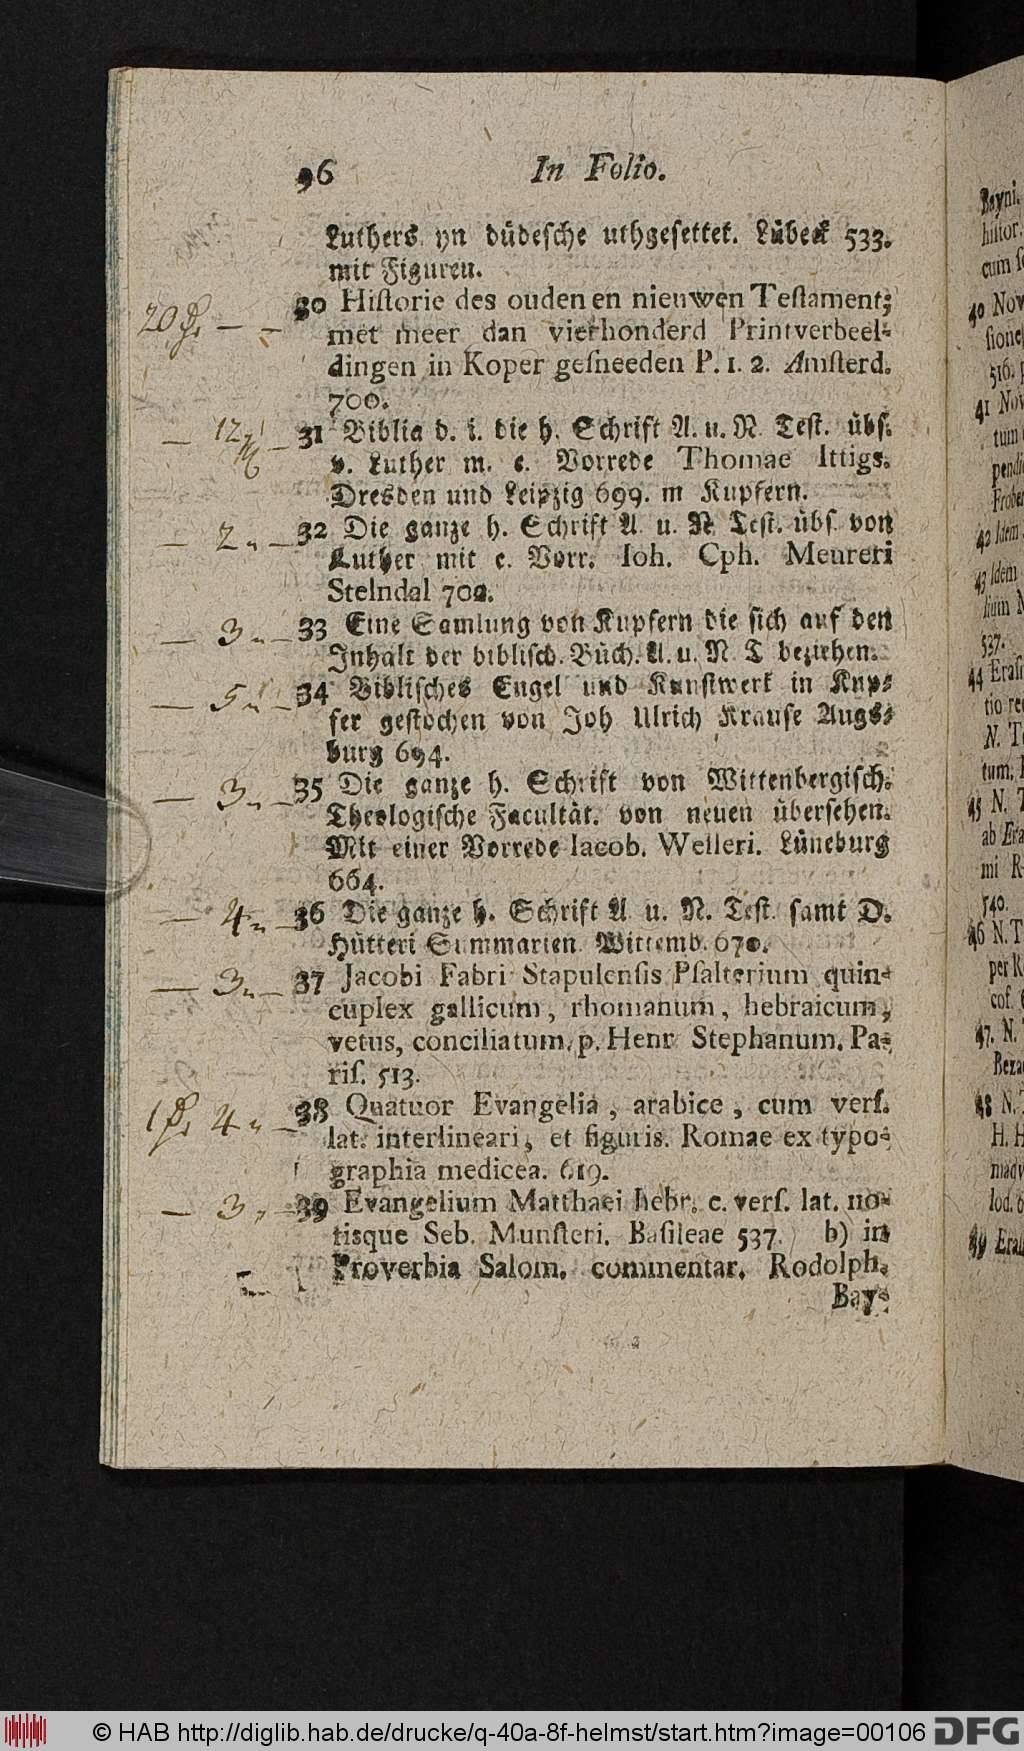 96 In Folio.
Luthers yn düdesche uthgesettet. Lübeck 533.
mit Figuren.
20 30 Historie des ouden en nieuwen Testament;
met meer dan vierhonderd Printverbeel-
dingen in Koper gesneeden P. 1. 2. Amsterd.
700.
— 12 — 31 Biblia d. i. die h. Schrift A. u. N. Test. übs.
v. Luther m. e. Vorrede Thomae Ittigs.
Dresden und Leipzig 699. m Kupfern.
— 2 „ — 32 Die ganze h. Schrift A. u. N Test. übs. von
Luther mit e. Vorr. Ioh. Cph. Meureri
Stelndal 702.
— 3 „ — 33 Eine Samlung von Kupfern die sich auf den
Inhalt der biblisch. Büch. A. u. N. T beziehen.
— 5 „ — 34 Biblisches Engel und Kunstwerk in Kup-
fer gestochen von Joh Ulrich Krause Augs-
burg 694.
— 3 „ — 35 Die ganze h. Schrift von Wittenbergisch.
Theologische Facultät. von neuen übersehen.
Mit einer Vorrede Iacob. Welleri. Lüneburg
664.
— 4 „ — 36 Die ganze h. Schrift A. u. N. Test. samt D.
Hütteri Summarien. Wittemb. 670.
— 3 „ — 37 Jacobi Fabri Stapulensis Psalterium quin-
cuplex gallicum, rhomanum, hebraicum,
vetus, conciliatum. p. Henr Stephanum. Pa-
ris. 513.
1 4 „ — 38 Quatuor Evangelia, arabice, cum vers.
lat. interlineari, et figuris. Romae ex typo-
graphia medicea. 619.
— 3 „ — 39 Evangelium Matthaei hebr. c. vers. lat. no-
tisque Seb. Munsteri. Basileae 537. b) in
Proverbia Salom. commentar. Rodolph.
Bay-
Bayni.
histor.
40 Nov
516.
41 Nov
tum
Frobe
42 Idem
43 Idem
537.
44 Eras
tio re
N. T
tum.
45 N. T
ab Era
mi R
540.
46 N. T
per R
cos.
47. N.
Beza
48 N. T
H. H
Iod.
49 Eras
© HAB http://diglib.hab.de/drucke/q-40a-8f-helmst/start.htm?image=00106 DFG